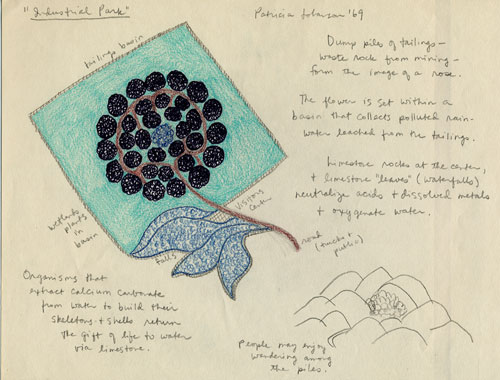 "Industrial Park"
Patricia Johanson '69
Dump piles of tailings –
waste rock from mining –
form the image of a rose.
The flower is set within a
basin that collects polluted rain-
water leached from the tailings.
Limestone rocks at the center,
+ limestone "leaves" (waterfalls)
neutralize acids + dissolved metals
+ oxygenate water.
tailings basin
wetland
plants
in
basin
visitors
center
falls
road
(trucks +
public)
Organisms that
extract calcium carbonate
from water to build their
skeletons + shells return
the gift of life to water
via limestone.
People may enjoy
wandering among
the piles.